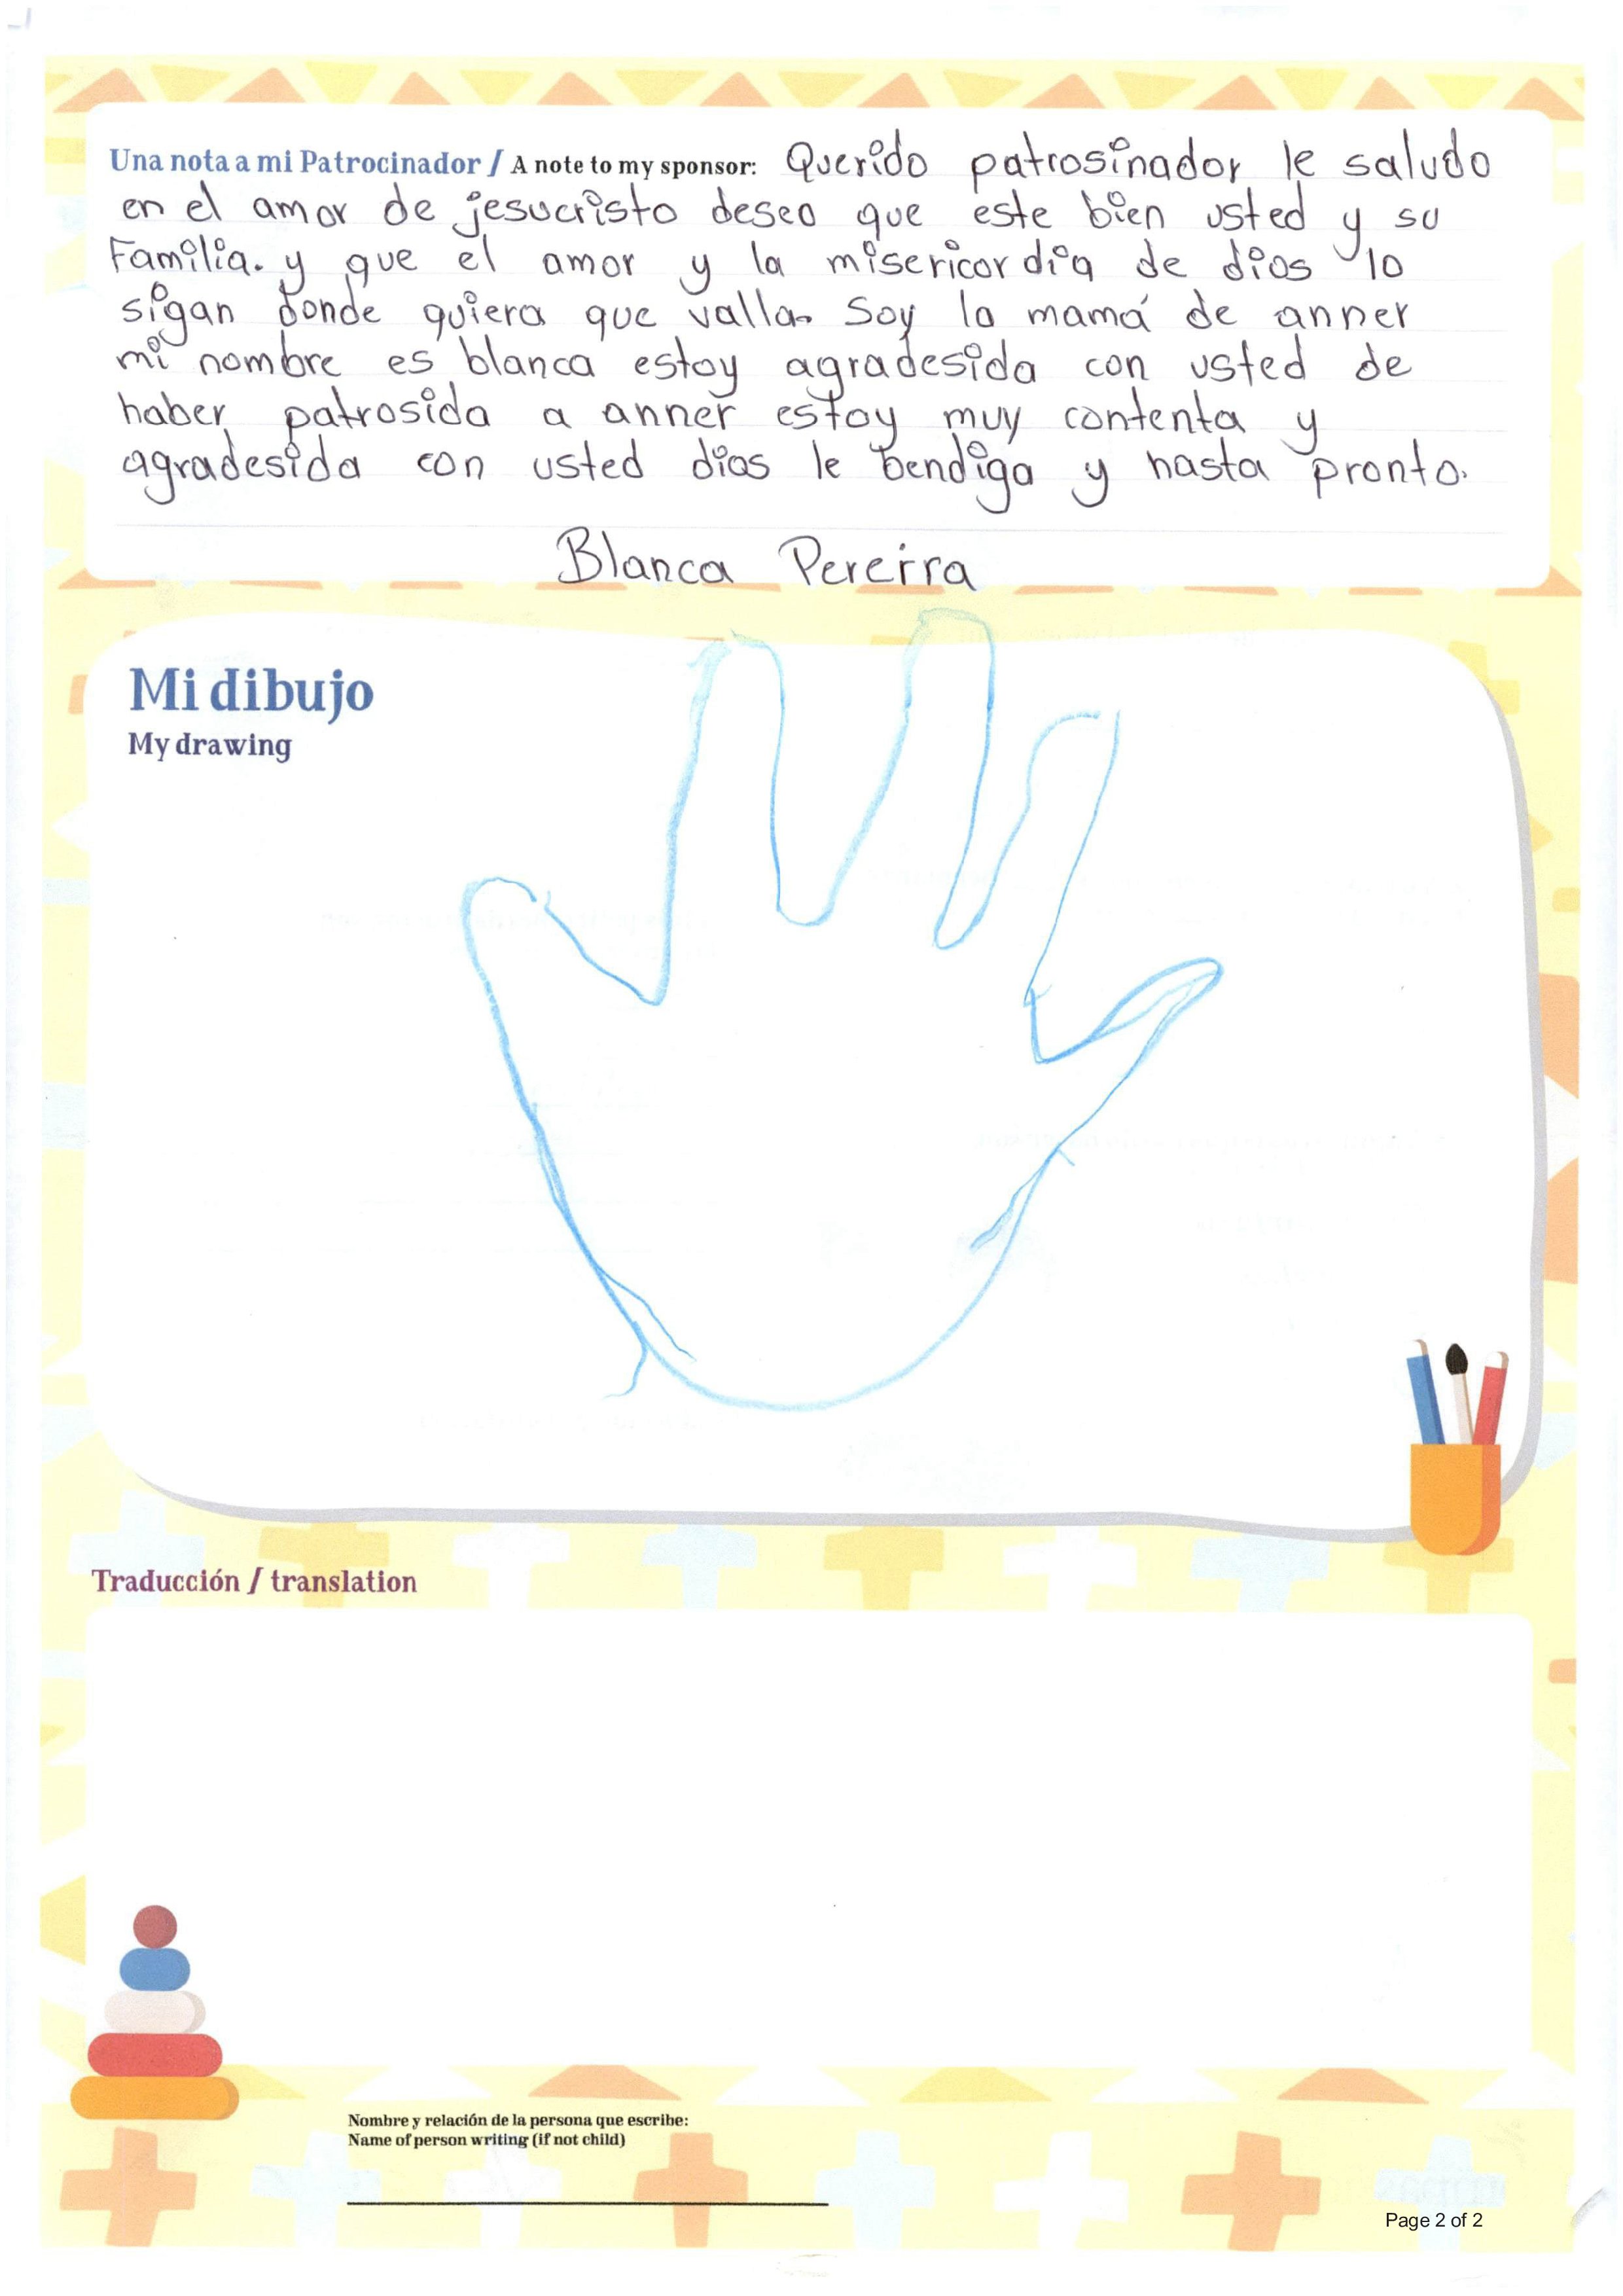 Una nota a mi Patrocinador / A note to my sponsor: Querido patrosinador le saludo
en el amor de jesucristo deseo que este bien usted y su
Familia. y que el amor y la misericordia de dios lo
sigan donde quiera que valla. Soy la mamá de anner
mi nombre es blanca estoy agradesida con usted de
haber patrosida a anner estoy muy contenta y
agradesida con usted dios le bendiga y hasta pronto.
Blanca Pereirra
Mi dibujo
My drawing
Traducción / translation
Nombre y relación de la persona que escribe:
Name of person writing (if not child)
Page 2 of 2